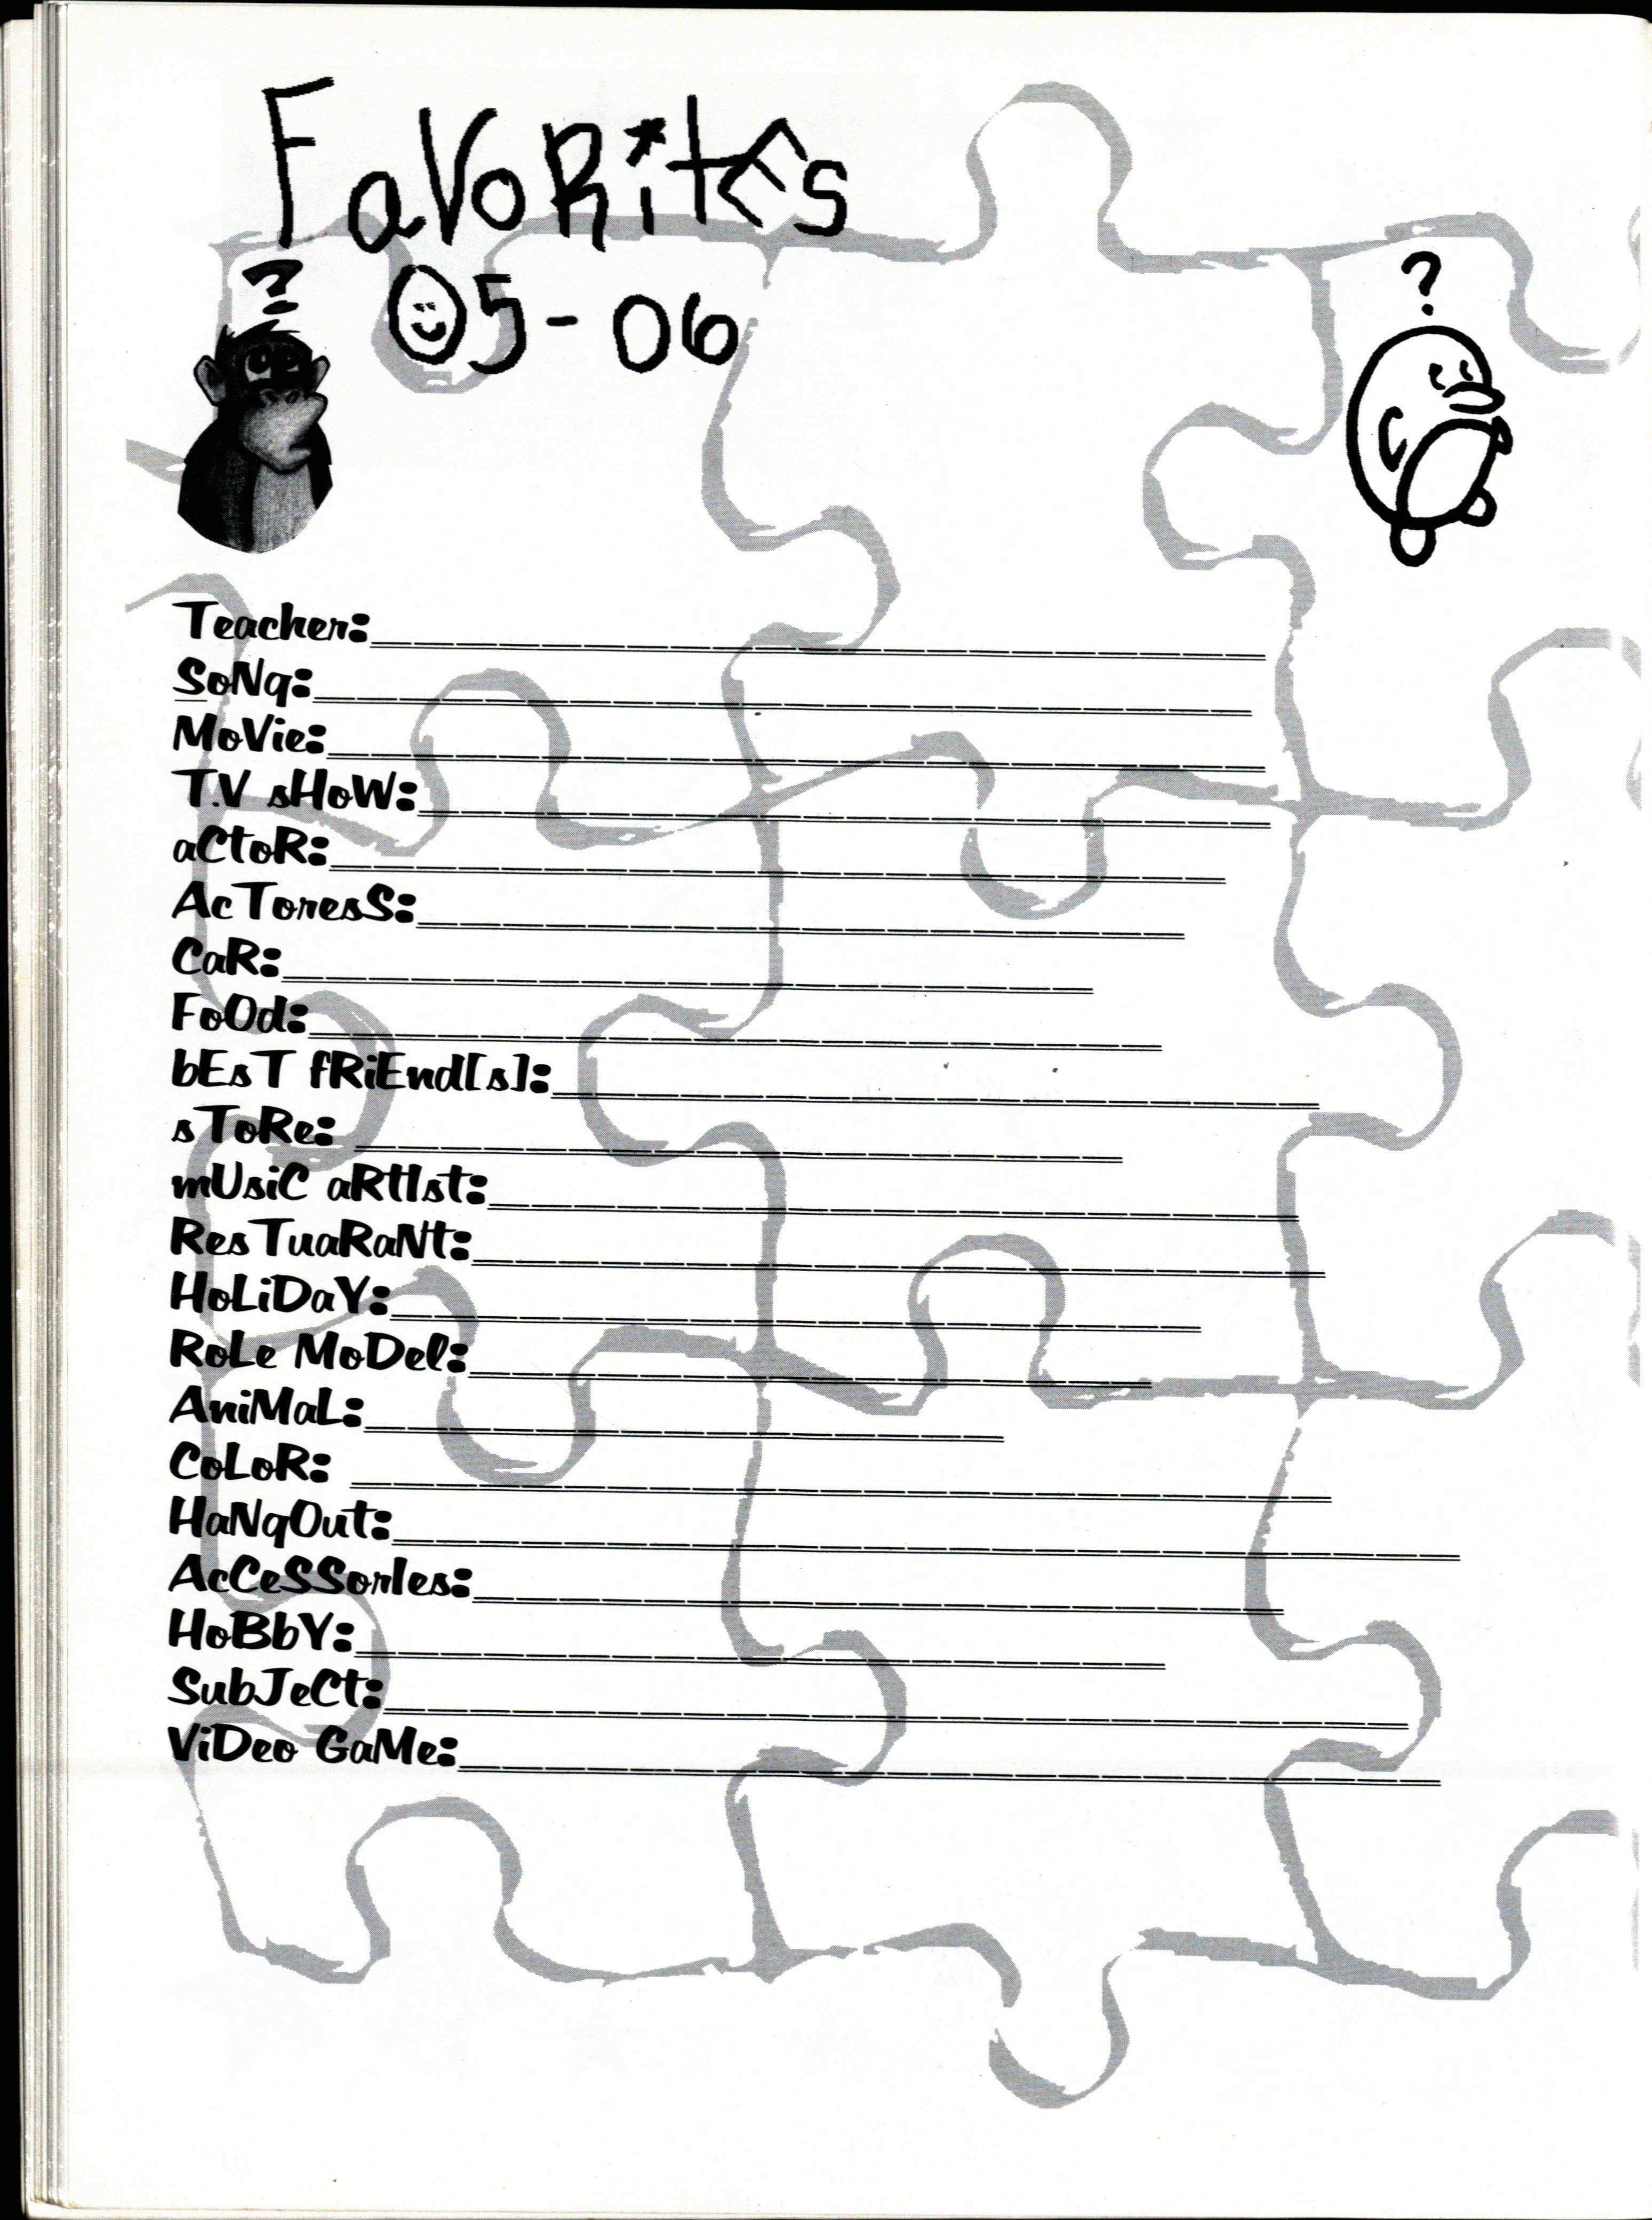 FavoRites
05-06
?
?
Teacher:
SoNg:
MoVie:
T.V sHoW:
aCtoR:
AcToresS:
CaR:
FoOd:
bEsT fRiEnd[s]:
sToRe:
mUsiC aRtIst:
ResTuaRaNt:
HoLiDaY:
RoLe MoDel:
AniMaL:
CoLoR:
HaNgOut:
AcCeSSorIes:
HoBbY:
SubJeCt:
ViDeo GaMe: